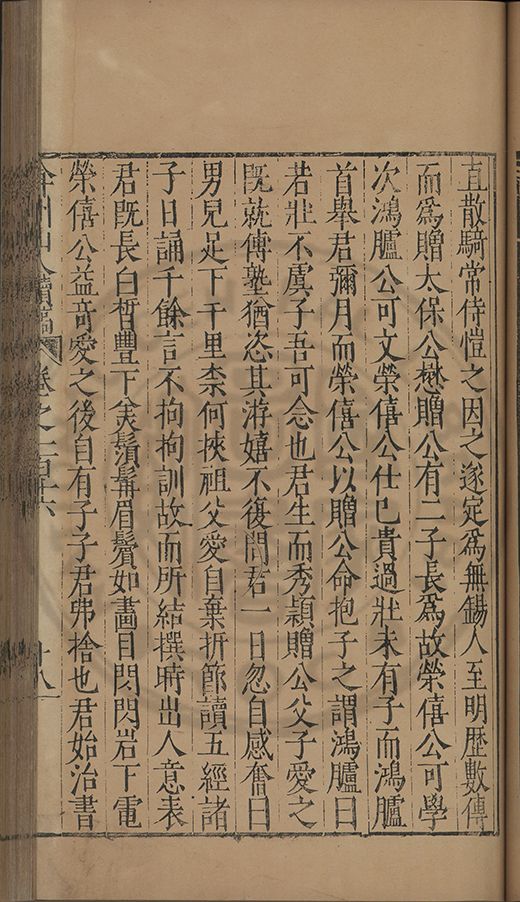 直散騎常侍愷之因之遂定爲無錫人至明歴數傳
而爲贈太保公懋贈公有二子長爲故榮僖公可學
次鴻臚公可文榮僖公仕已貴過壯未有子而鴻臚
首舉君彌月而榮僖公以贈公命抱子之謂鴻臚曰
若壯不虞子吾可念也君生而秀頴贈公父子愛之
既就傅塾猶恣其游嬉不復問君一日忽自感奮曰
男兒足下千里柰何挾祖父愛自棄折節讀五經諸
子日誦千餘言不拘拘訓故而所結撰時出人意表
君既長白晳豐下羙鬚髯眉鬢如畫目閃閃岩下電
榮僖公益竒愛之後自有子子君弗捨也君始治書
弇州山人續稿 卷之一百十六 十八